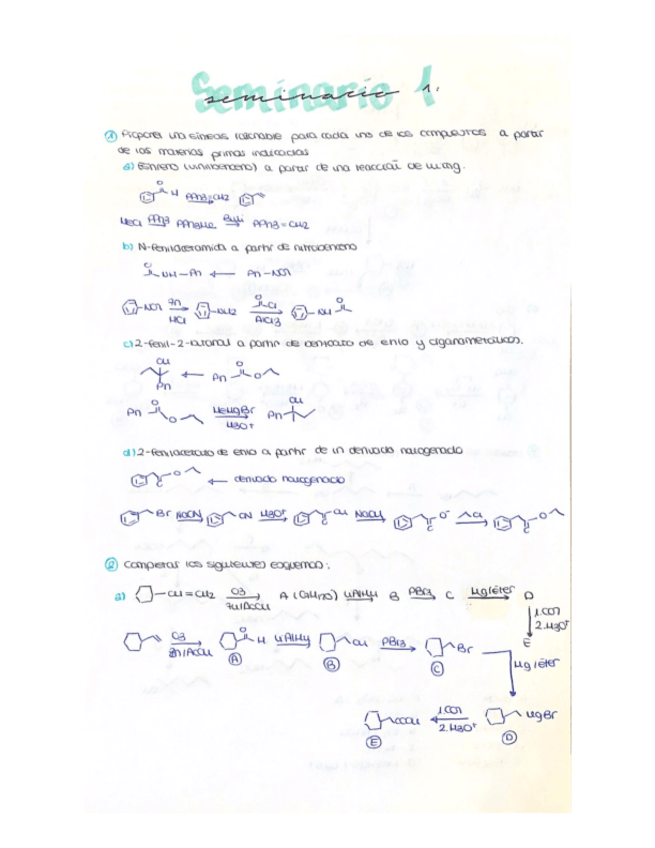 Seminario 1.
seminario 1.
① Proponer una síntesis razonable para cada uno de los compuestos a partir
de las materias primas indicadas
a) Estireno (vinilbenceno) a partir de una reacción de Wittig.
O
H PPh3=CH2
MeCl PPh3 PPh3Me BuLi PPh3=CH2
b) N-fenilacetamida a partir de nitrobenceno
O
NH-Ph ← Ph-NO2
-NO2 Zn HCl -NH2 O Cl AlCl3 -NH O
c) 2-fenil-2-butanol a partir de
de etilo y organometálicos.
OH
Ph ← Ph O O
Ph O O MeMgBr H3O+ Ph OH
d) 2-fenilacetato de etilo a partir de un derivado halogenado
O ← derivado halogenado
Br NaCN CN H3O+ OH NaOH O- Cl O
② Completar los siguientes esquemas:
a) -CH=CH2 O3 Zn/AcOH A (C7H12O) LiAlH4 B PBr3 C Mg/éter D
1. CO2
2. H3O+
E
O3 Zn/AcOH O H LiAlH4 OH PBr3 Br
A B C
Mg/éter
COOH 1. CO2 2. H3O+ MgBr
E D